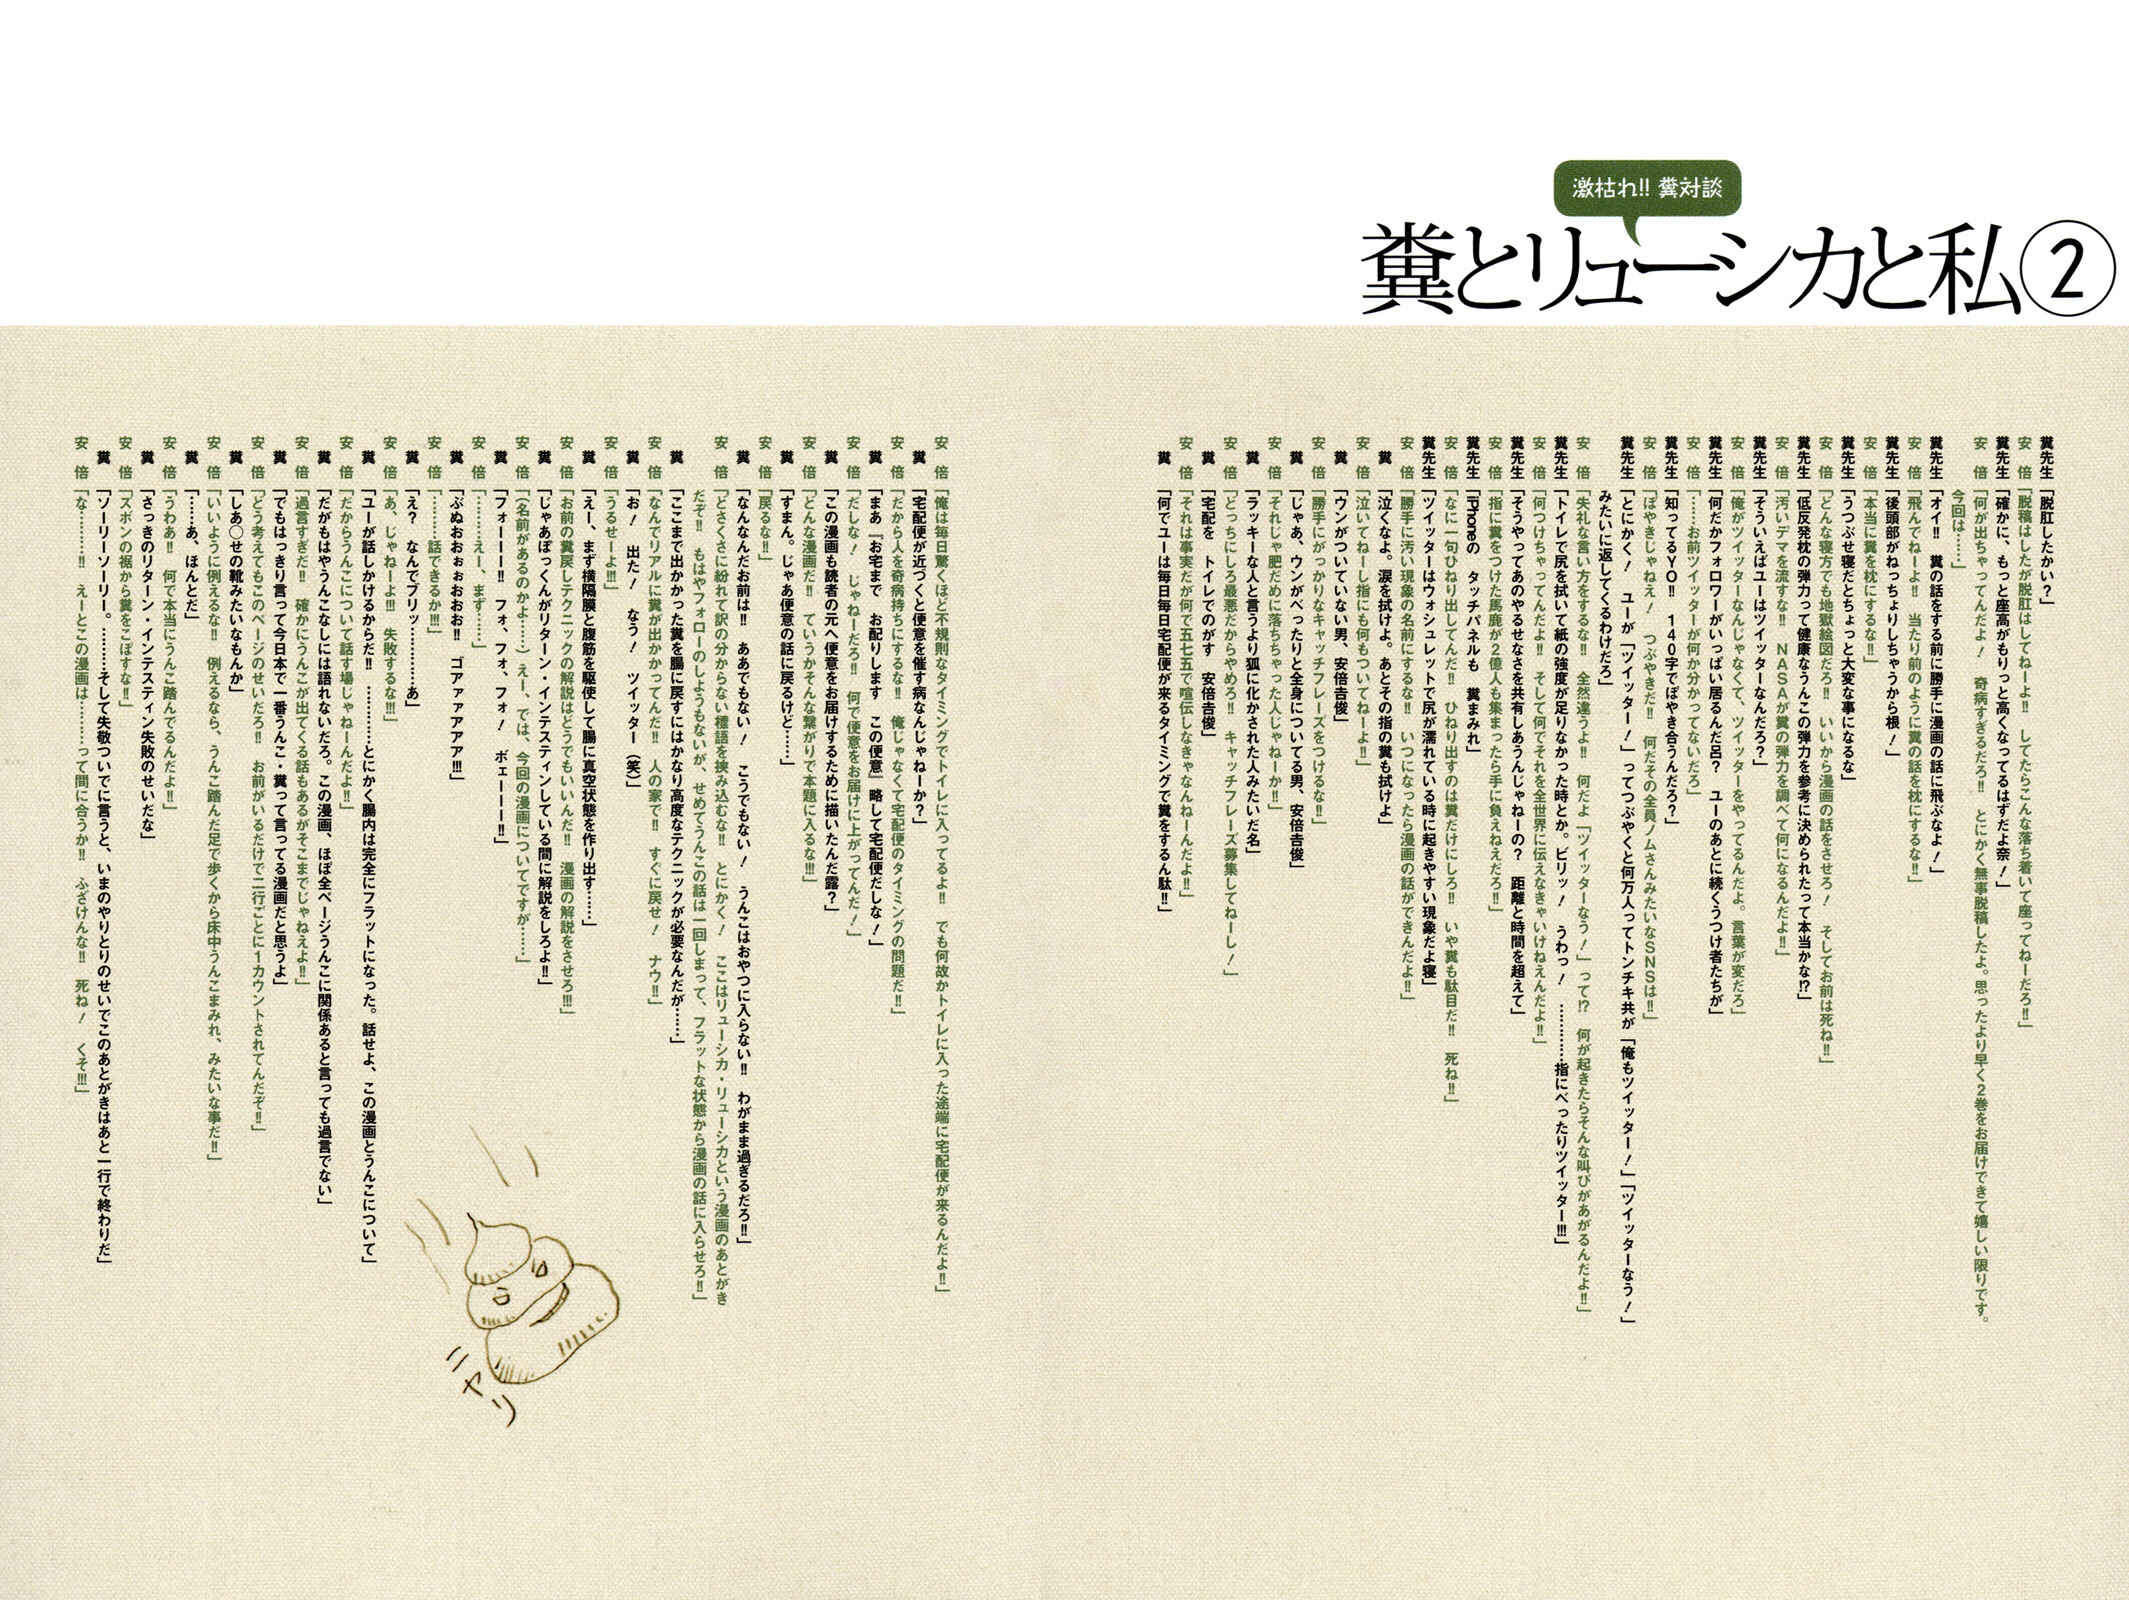 激枯れ!! 糞対談
糞とリューシカと私②
糞先生「脱肛したかい？」
安　倍「脱稿はしたが脱肛はしてねーよ!!　してたらこんな落ち着いて座ってねーだろ!!」
糞先生「確かに、もっと座高がもりっと高くなってるはずだよ奈！」
安　倍「何が出ちゃってんだよ！　奇病すぎるだろ!!　とにかく無事脱稿したよ。思ったより早く２巻をお届けできて嬉しい限りです。
今回は……」
糞先生「オイ!!　糞の話をする前に勝手に漫画の話に飛ぶなよ！」
安　倍「飛んでねーよ!!　当たり前のように糞の話を枕にするな!!」
糞先生「後頭部がねっちょりしちゃうから根！」
安　倍「本当に糞を枕にするな!!」
糞先生「うつぶせ寝だとちょっと大変な事になるな」
安　倍「どんな寝方でも地獄絵図だろ!!　いいから漫画の話をさせろ！　そしてお前は死ね!!」
糞先生「低反発枕の弾力って健康なうんこの弾力を参考に決められたって本当かな!?」
安　倍「汚いデマを流すな!!　ＮＡＳＡが糞の弾力を調べて何になるんだよ!!」
糞先生「そういえばユーはツイッターなんだろ？」
安　倍「俺がツイッターなんじゃなくて、ツイッターをやってるんだよ。言葉が変だろ」
糞先生「何だかフォロワーがいっぱい居るんだ呂？　ユーのあとに続くうつけ者たちが」
安　倍「……お前ツイッターが何か分かってないだろ」
糞先生「知ってるＹＯ!!　１４０字でぼやき合うんだろ？」
安　倍「ぼやきじゃねえ！　つぶやきだ!!　何だその全員ノムさんみたいなＳＮＳは!!」
糞先生「とにかく！　ユーが「ツイッター！」ってつぶやくと何万人ってトンチキ共が「俺もツイッター！」「ツイッターなう！」
みたいに返してくるわけだろ」
安　倍「失礼な言い方をするな!!　全然違うよ!!　何だよ「ツイッターなう！」って!?　何が起きたらそんな叫びがあがるんだよ!!」
糞先生「トイレで尻を拭いて紙の強度が足りなかった時とか。ビリッ！　うわっ！　…………指にべったりツイッター!!!」
安　倍「何つけちゃってんだよ!!　そして何でそれを全世界に伝えなきゃいけねえんだよ!!」
糞先生「そうやってあのやるせなさを共有しあうんじゃねーの？　距離と時間を超えて」
安　倍「指に糞をつけた馬鹿が２億人も集まったら手に負えねえだろ!!」
糞先生「iPhoneの　タッチパネルも　糞まみれ」
安　倍「なに一句ひねり出してんだ!!　ひねり出すのは糞だけにしろ!!　いや糞も駄目だ!!　死ね!!」
糞先生「ツイッターはウォシュレットで尻が濡れている時に起きやすい現象だよ寝」
安　倍「勝手に汚い現象の名前にするな!!　いつになったら漫画の話ができんだよ!!」
糞「泣くなよ。涙を拭けよ。あとその指の糞も拭けよ」
安　倍「泣いてねーし指にも何もついてねーよ!!」
糞「ウンがついていない男、安倍吉俊」
安　倍「勝手にがっかりなキャッチフレーズをつけるな!!」
糞「じゃあ、ウンがべったりと全身についてる男、安倍吉俊」
安　倍「それじゃ肥だめに落ちちゃった人じゃねーか!!」
糞「ラッキーな人と言うより狐に化かされた人みたいだ名」
安　倍「どっちにしろ最悪だからやめろ!!　キャッチフレーズ募集してねーし！」
糞「宅配を　トイレでのがす　安倍吉俊」
安　倍「それは事実だが何で五七五で喧伝しなきゃなんねーんだよ!!」
糞「何でユーは毎日毎日宅配便が来るタイミングで糞をするん駄!!」
安　倍「俺は毎日驚くほど不規則なタイミングでトイレに入ってるよ!!　でも何故かトイレに入った途端に宅配便が来るんだよ!!」
糞「宅配便が近づくと便意を催す病なんじゃねーか？」
安　倍「だから人を奇病持ちにするな!!　俺じゃなくて宅配便のタイミングの問題だ!!」
糞「まあ『お宅まで　お配りします　この便意』略して宅配便だしな！」
安　倍「だしな！　じゃねーだろ!!　何で便意をお届けに上がってんだ！」
糞「この漫画も読者の元へ便意をお届けするために描いたんだ露？」
安　倍「どんな漫画だ!!　ていうかそんな繋がりで本題に入るな!!!」
糞「すまん。じゃあ便意の話に戻るけど……」
安　倍「戻るな!!」
糞「なんなんだお前は!!　ああでもない！　こうでもない！　うんこはおやつに入らない!!　わがまま過ぎるだろ!!」
安　倍「どさくさに紛れて訳の分からない標語を挟み込むな!!　とにかく！　ここはリューシカ・リューシカという漫画のあとがき
だぞ!!　もはやフォローのしようもないが、せめてうんこの話は一回しまって、フラットな状態から漫画の話に入らせろ!!」
糞「ここまで出かかった糞を腸に戻すにはかなり高度なテクニックが必要なんだが……」
安　倍「なんでリアルに糞が出かかってんだ!!　人の家で!!　すぐに戻せ！　ナウ!!」
糞「お！　出た！　なう！　ツイッター（笑）」
安　倍「うるせーよ!!!」
糞「えー、まず横隔膜と腹筋を駆使して腸に真空状態を作り出す……」
安　倍「お前の糞戻しテクニックの解説はどうでもいいんだ!!　漫画の解説をさせろ!!!」
糞「じゃあぼっくんがリターン・インテスティンしている間に解説をしろよ!!」
安　倍「（名前があるのかよ……）えー、では、今回の漫画についてですが……」
糞「フォーーー!!　フォ、フォ、フォ！　ボェーーー!!」
安　倍「………えー、まず……」
糞「ぶぬおおぉぉおおお!!　ゴアァァアアアア!!!」
安　倍「………話できるか!!!」
糞「え？　なんでブリッ…………あ」
安　倍「あ、じゃねーよ!!!　失敗するな!!!」
糞「ユーが話しかけるからだ!!　…………とにかく腸内は完全にフラットになった。話せよ、この漫画とうんこについて」
安　倍「だからうんこについて話す場じゃねーんだよ!!」
糞「だがもはやうんこなしには語れないだろ。この漫画、ほぼ全ページうんこに関係あると言っても過言でない」
安　倍「過言すぎだ!!　確かにうんこが出てくる話もあるがそこまでじゃねえよ!!」
糞「でもはっきり言って今日本で一番うんこ・糞って言ってる漫画だと思うよ」
安　倍「どう考えてもこのページのせいだろ!!　お前がいるだけで二行ごとに１カウントされてんだぞ!!」
糞「しあ○せの靴みたいなもんか」
安　倍「いいように例えるな!!　例えるなら、うんこ踏んだ足で歩くから床中うんこまみれ、みたいな事だ!!」
糞「……あ、ほんとだ」
安　倍「うわあ!!　何で本当にうんこ踏んでるんだよ!!」
糞「さっきのリターン・インテスティン失敗のせいだな」
安　倍「ズボンの裾から糞をこぼすな!!」
糞「ソーリーソーリー。………そして失敬ついでに言うと、いまのやりとりのせいでこのあとがきはあと一行で終わりだ」
安　倍「な………!!　えーとこの漫画は………って間に合うか!!　ふざけんな!!　死ね！　くそ!!!」
ニヤリ